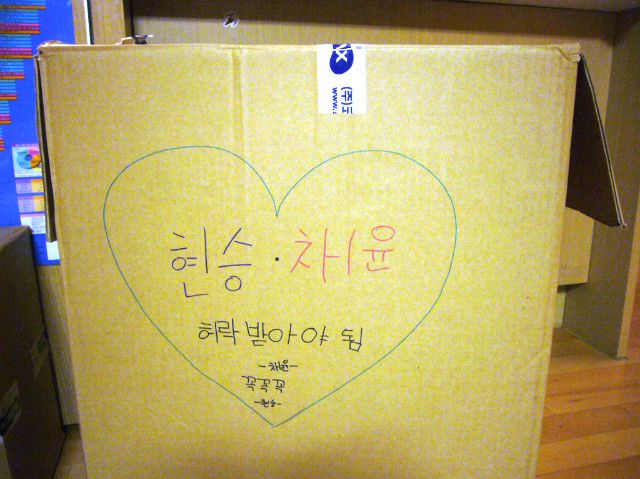 현승 · 채윤
허락 받아야 됨
-채윤-
꼭꼭꼭
-현승-